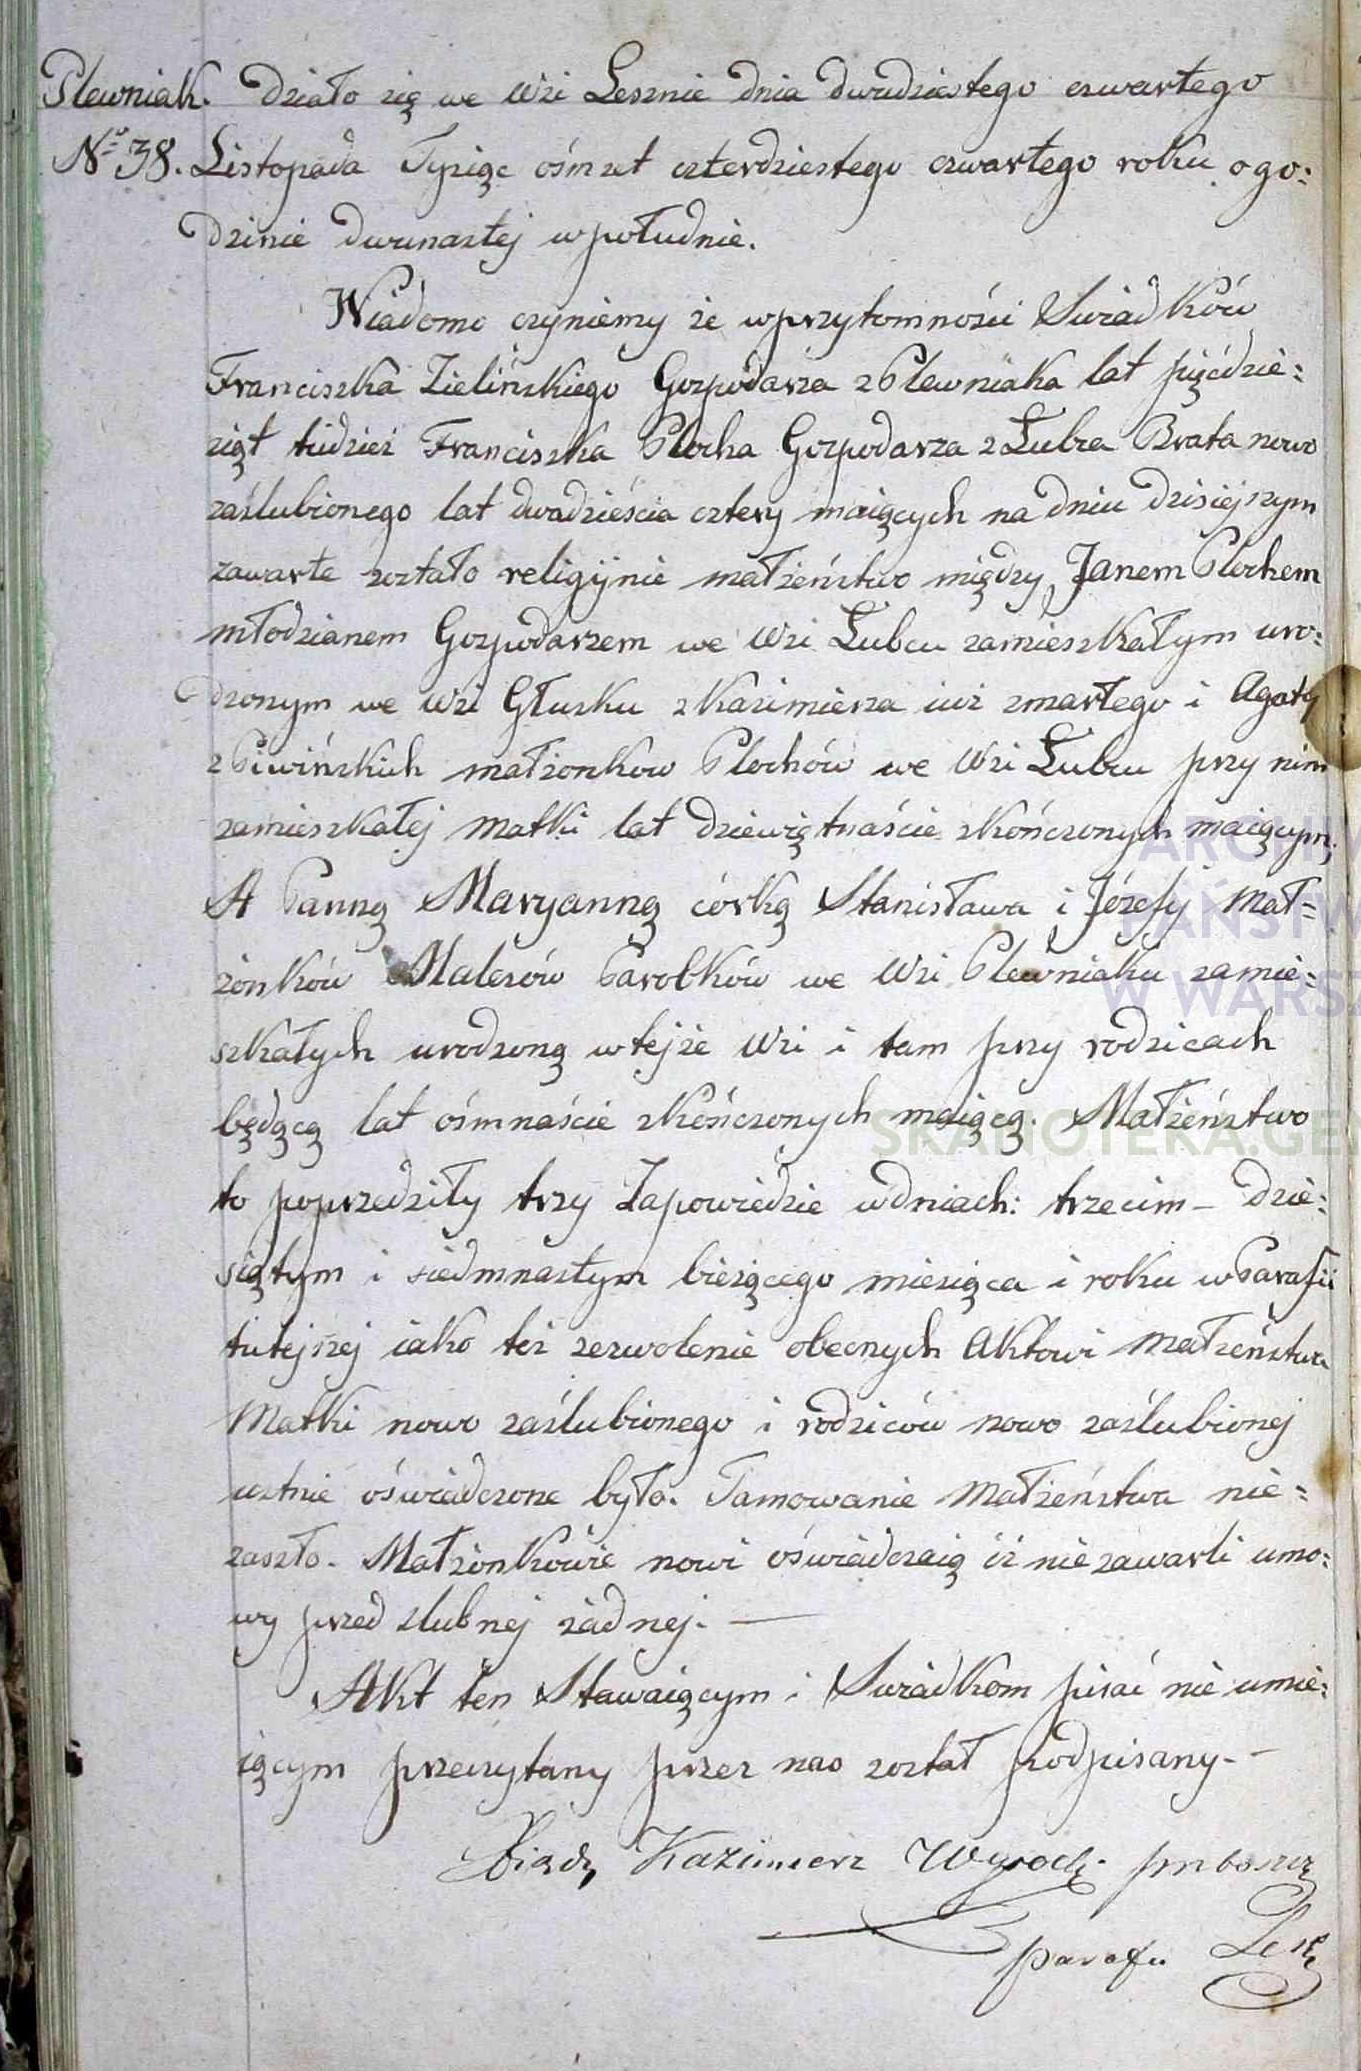 Plewniak. Działo się we Wsi Lesznie dnia dwudziestego czwartego
No 38. Listopada Tysiąc ośmset czterdziestego czwartego roku o go:
dzinie dwunastej w południe.
Wiadomo czyniemy że w przytomności Swiadków
Franciszka Zielińskiego Gospodarza z Plewniaka lat pięćdzie:
siąt tudzież Franciszka Plocha Gospodarza z Lubca Brata nowo
zaślubionego lat dwadzieścia cztery maiących na dniu dzisiejszym
zawarte zostało religijnie małżeństwo między Janem Plochem
młodzianem Gospodarzem we Wsi Lubcu zamieszkałym uro:
dzonym we Wsi Głusku z Kazimierza iuż zmarłego i Agaty
z Piwińskich małżonkow Plochów we Wsi Lubcu przy nim
zamieszkałej Matki lat dziewiętnaście skończonych maiącym;
A Panną Maryanną córką Stanisława i Józefy Mał=
żonków Malesów Parobków we Wsi Plewniaku zamie:
szkałych urodzoną w tejże Wsi i tam przy rodzicach
będącą lat ośmnaście skończonych maiącą. Małżeństwo
to poprzedziły trzy Zapowiedzie w dniach: trzecim – dzie:
siątym i siedmnastym bieżącego miesiąca i roku w Parafii
tutejszej iako też zezwolenie obecnych Aktowi Małżeństwa
Matki nowo zaślubionego i rodziców nowo zaślubionej
ustnie oświadczone było. Tamowanie Małżeństwa nie=
zaszło. Małżonkowie nowi oświadczaią iż nie zawarli umo:
wy przed slubnej żadnej. —
Akt ten Stawaiącym i Swiadkom pisać nie umie:
iącym przeczytany przez nas został podpisany. –
Xiądz Kazimierz proboszcz
parafii Lesz